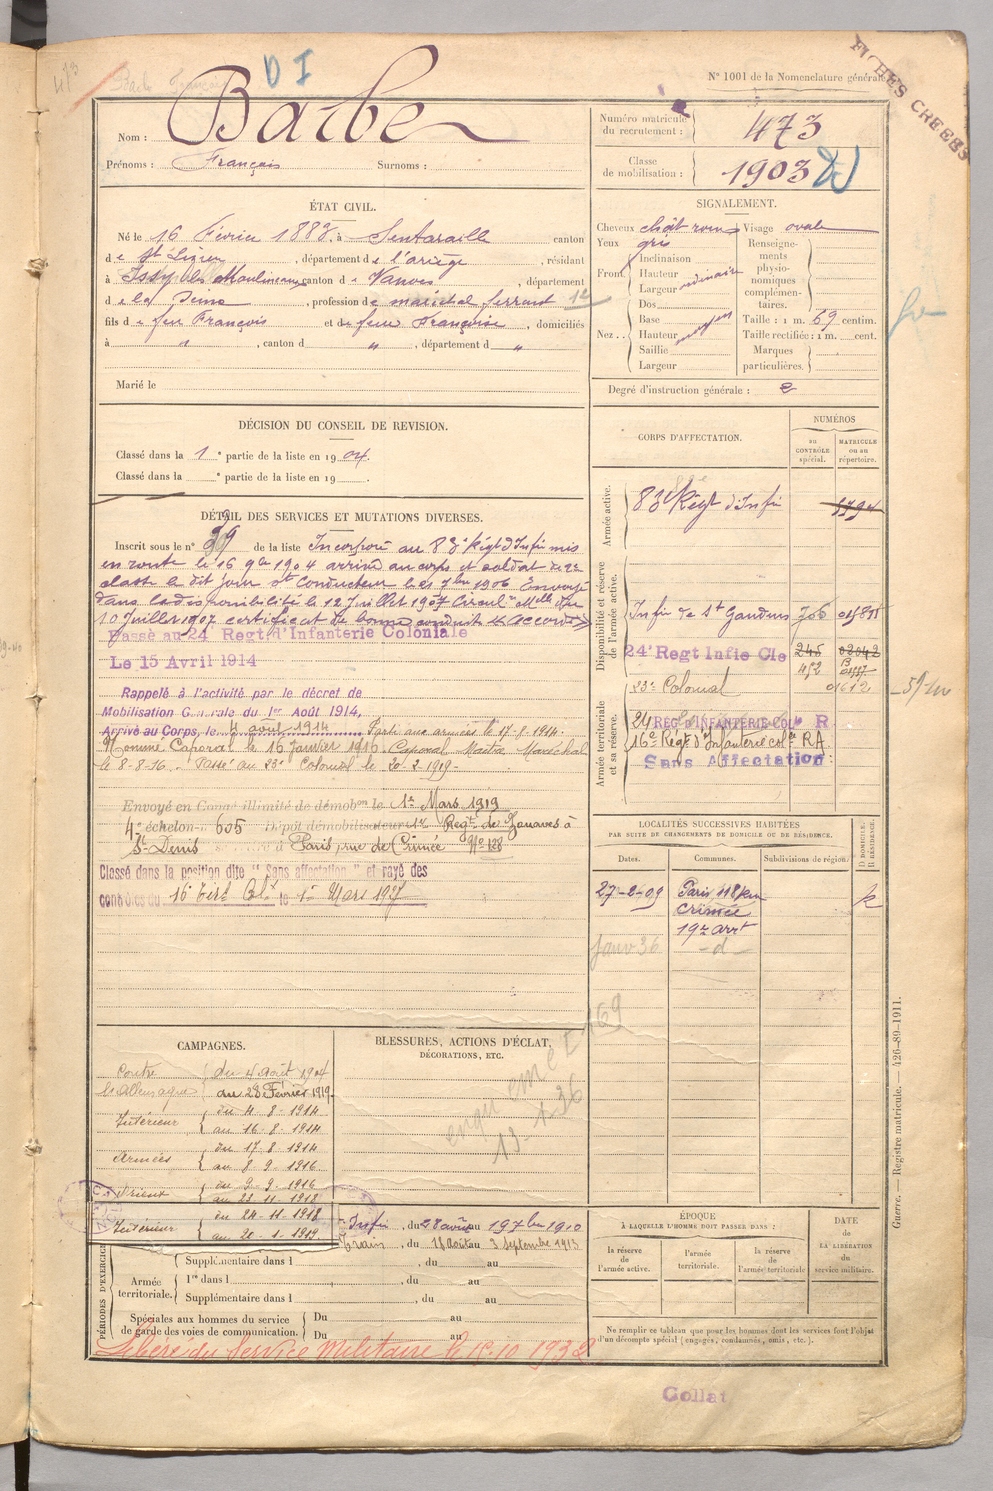 473
Barbe François
D I
FICHES CRÉÉES
N° 1001 de la Nomenclature générale
Nom : Barbe
Prénoms : François Surnoms :
Numéro matricule du recrutement : 473
Classe de mobilisation : 1903
ÉTAT CIVIL.
Né le 16 Février 1883, à Sentaraille canton
de St Lizier, département de l'ariège, résidant
à Issy les Moulineaux canton de Vanves, département
de la Seine, profession de maréchal ferrant 12
fils de feu François et de feue Françoise, domiciliés
à " , canton d " , département d "
Marié le
SIGNALEMENT.
Cheveux chât roux Visage ovale
Yeux gris
Front Inclinaison
Hauteur ordinaire
Largeur
Nez Dos
Base
Hauteur moyen
Saillie
Largeur
Renseignements physionomiques complémentaires.
Taille : 1 m. 69 centim.
Taille rectifiée : 1 m. cent.
Marques particulières.
Degré d'instruction générale : 2
DÉCISION DU CONSEIL DE REVISION.
Classé dans la 1e partie de la liste en 1904.
Classé dans la e partie de la liste en 19 .
CORPS D'AFFECTATION.
NUMÉROS
au CONTRÔLE spécial.
MATRICULE ou au répertoire.
Armée active.
83e Régt d'Infie
Disponibilité et réserve de l'armée active.
Infie de St Gaudens 706
24e Regt Infie Cle 245 02042
452
23e Colonial 01612
Armée territoriale et sa réserve.
24 REG D'INFANTERIE COLle R
16e Régt d'Infanterie colle RA
Sans Affectation
DÉTAIL DES SERVICES ET MUTATIONS DIVERSES.
Inscrit sous le n° 39 de la liste Incorporé au 83e Régt d'Infie mis
en route le 16 9bre 1904 arrivé au corps et soldat de 2e
classe le dit jour. Conducteur le 7bre 1906 Envoyé
dans la disponibilité le 12 Juillet 1907 Circul Mlle du
10 Juillet 1907 certificat de bonne conduite « accordé »
Passé au 24e Regt d'Infanterie Coloniale
Le 15 Avril 1914
Rappelé à l'activité par le décret de
Mobilisation Générale du 1er Août 1914,
Arrivé au Corps, le 4 août 1914. Parti aux armées le 17-8-1914.
Nommé Caporal le 16 janvier 1916. Caporal Maître Maréchal
le 8-8-16. Passé au 23e Colonial le 20-2-1919.
Envoyé en Congé illimité de démobon le 1er Mars 1919
4e échelon n° 605 Dépôt démobilisateur 1er Régt de Zouaves à
St Denis se retire à Paris, rue de Crimée No 128
Classé dans la position dite "Sans affectation" et rayé des
contrôles du 16e Tirs Colx le 1er Mars 1927
LOCALITÉS SUCCESSIVES HABITÉES
PAR SUITE DE CHANGEMENTS DE DOMICILE OU DE RÉSIDENCE.
Dates. Communes. Subdivisions de région. D DOMICILE. R RÉSIDENCE.
27-2-09 Paris 118 rue Crimée 19e arrt R
Janv 36 -d-
CAMPAGNES.
Contre l'Allemagne du 4 Août 1914
au 28 Février 1919
Intérieur du 4-8-1914
au 16-8-1914
Armées du 17-8-1914
au 8-9-1916
Orient du 9-9-1916
au 23-11-1918
Intérieur du 24-11-1918
au 20-1-1919
BLESSURES, ACTIONS D'ÉCLAT,
DÉCORATIONS, ETC.
PÉRIODES D'EXERCICES
Infie, du 28 août au 19 7bre 1910
Train, du 18 Août au 3 Septembre 1913
Supplémentaire dans l , du au
Armée territoriale. 1re dans l , du au
Supplémentaire dans l , du au
Spéciales aux hommes du service de garde des voies de communication. Du au
Du au
Libéré du Service Militaire le 15-10-1932
ÉPOQUE
À LAQUELLE L'HOMME DOIT PASSER DANS :
la réserve de l'armée active.
l'armée territoriale.
la réserve de l'armée territoriale
DATE DE LA LIBÉRATION du service militaire.
Ne remplir ce tableau que pour les hommes dont les services font l'objet
d'un décompte spécial (engagés, condamnés, omis, etc.).
Guerre. — Registre matricule. — 426-89-1911.
Gollat